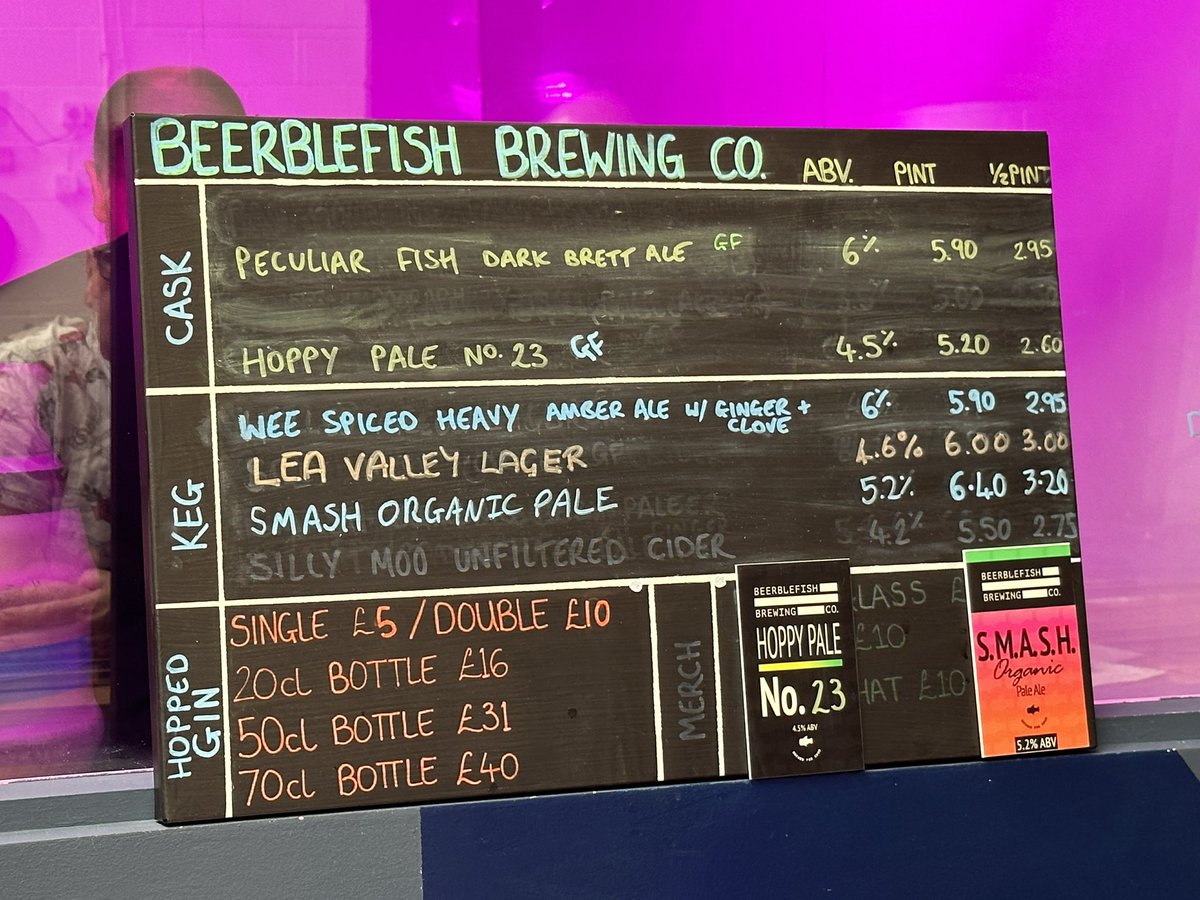 BEERBLEFISH BREWING CO. ABV. PINT ½PINT
CASK
PECULIAR FISH DARK BRETT ALE GF 6% 5.90 2.95
HOPPY PALE No. 23 GF 4.5% 5.20 2.60
KEG
WEE SPICED HEAVY AMBER ALE W/ GINGER + CLOVE 6% 5.90 2.95
LEA VALLEY LAGER 4.6% 6.00 3.00
SMASH ORGANIC PALE 5.2% 6.40 3.20
SILLY MOO UNFILTERED CIDER 4.2% 5.50 2.75
HOPPED GIN
SINGLE £5 / DOUBLE £10
20cl BOTTLE £16
50cl BOTTLE £31
70cl BOTTLE £40
MERCH
LASS £
£10
HAT £10
BEERBLEFISH
BREWING CO.
HOPPY PALE
No. 23
4.5% ABV
BEERBLEFISH
BREWING CO.
S.M.A.S.H.
Organic
Pale Ale
5.2% ABV